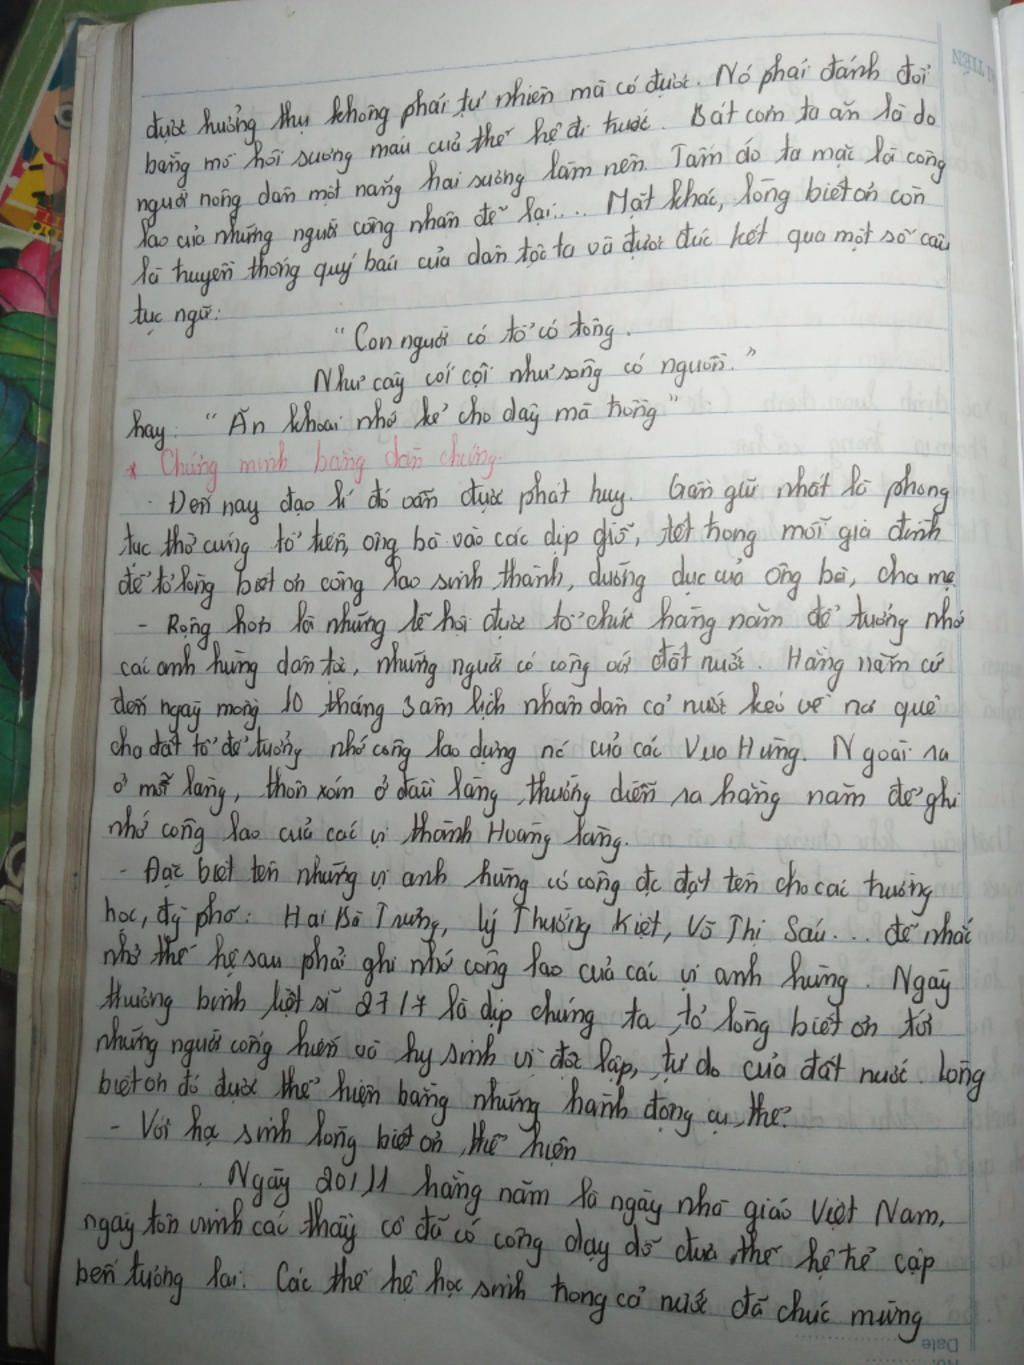 được hưởng thụ không phải tự nhiên mà có được. Nó phải đánh đổi
bằng mồ hôi sương máu của thế hệ đi trước. Bát cơm ta ăn là do
người nông dân một nắng hai sương làm nên. Tấm áo ta mặc là công
lao của những người công nhân để lại... Mặt khác, lòng biết ơn còn
là truyền thống quý báu của dân tộc ta và được đúc kết qua một số câu
tục ngữ:
"Con người có tổ có tông.
Như cây có cội như sông có nguồn."
hay: "Ăn khoai nhớ kẻ cho dây mà trồng"
* Chứng minh bằng dẫn chứng.
- Đến nay đạo lí đó vẫn được phát huy. Gần gũi nhất là phong
tục thờ cúng tổ tiên, ông bà vào các dịp giỗ, tết trong mỗi gia đình
để tỏ lòng biết ơn công lao sinh thành, dưỡng dục của ông bà, cha mẹ
- Rộng hơn là những lễ hội được tổ chức hàng năm để tưởng nhớ
các anh hùng dân tộc, những người có công với đất nước. Hàng năm cứ
đến ngày mồng 10 tháng 3 âm lịch nhân dân cả nước kéo về nơi quê
cha đất tổ để tưởng nhớ công lao dựng nc của các Vua Hùng. Ngoài ra
ở mỗi làng, thôn xóm ở đầu làng thường diễn ra hàng năm để ghi
nhớ công lao của các vị thành Hoàng làng.
- Đặc biệt tên những vị anh hùng có công đc đặt tên cho các trường
học, đg phố: Hai Bà Trưng, Lý Thường Kiệt, Võ Thị Sáu... để nhắc
nhở thế hệ sau phải ghi nhớ công lao của các vị anh hùng. Ngày
thương binh liệt sĩ 27/7 là dịp chúng ta tỏ lòng biết ơn tới
những người cống hiến và hy sinh vì độc lập, tự do của đất nước. Lòng
biết ơn đó được thể hiện bằng những hành động cụ thể.
- Với học sinh lòng biết ơn thể hiện
Ngày 20/11 hàng năm là ngày nhà giáo Việt Nam,
ngày tôn vinh các thầy cô đã có công dạy dỗ đưa thế hệ trẻ cập
bến tương lai. Các thế hệ học sinh trong cả nước đã chúc mừng
Date